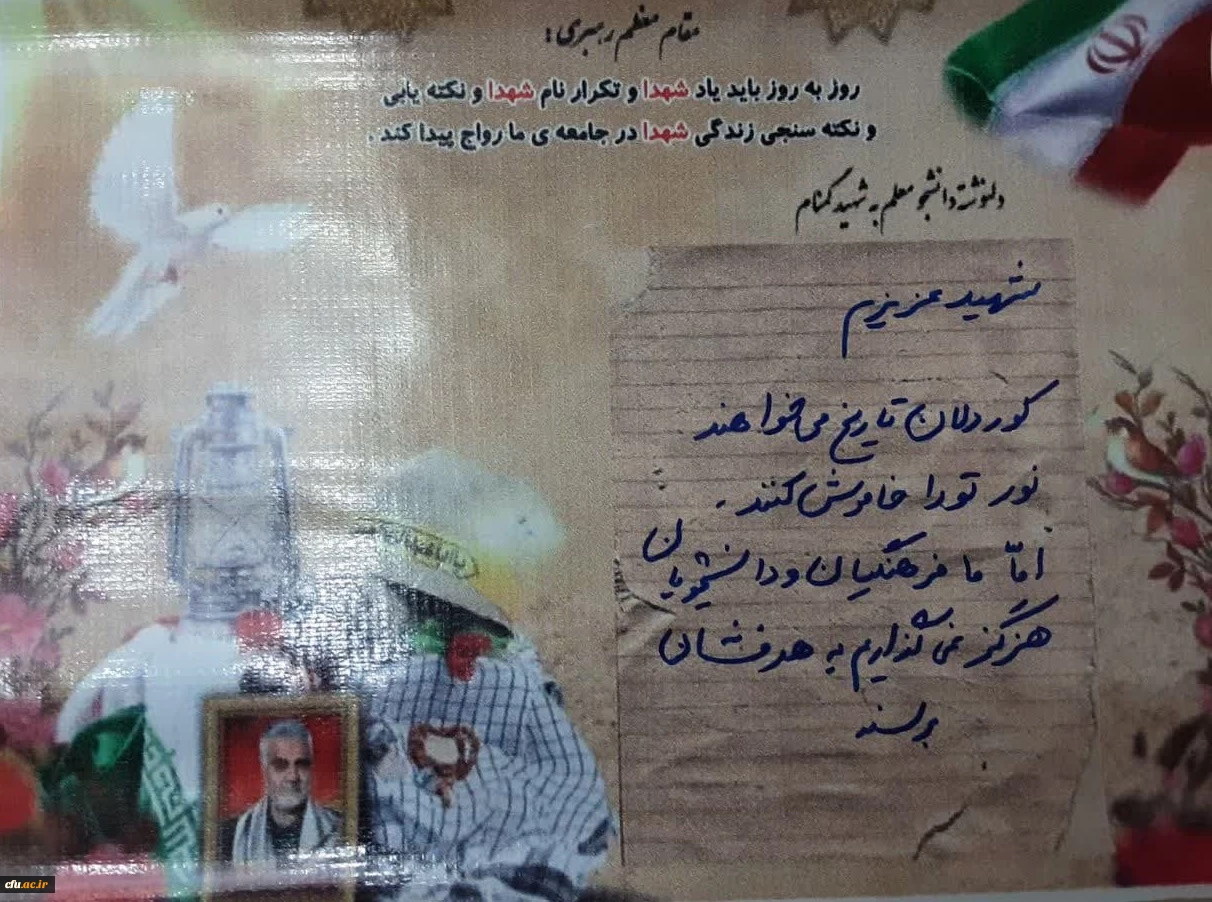 مقام معظم رهبری:
روز به روز باید یاد شهدا و تکرار نام شهدا و نکته یابی
و نکته سنجی زندگی شهدا در جامعه ی ما رواج پیدا کند .
دلنوشته دانشجو معلم به شهید گمنام
شهید عزیزم
کوردلان تاریخ می‌خواهند
نور تو را خاموش کنند .
امّا ما فرهنگیان و دانشجویان
هرگز نمی‌گذاریم به هدفشان
برسند
cfu.ac.ir